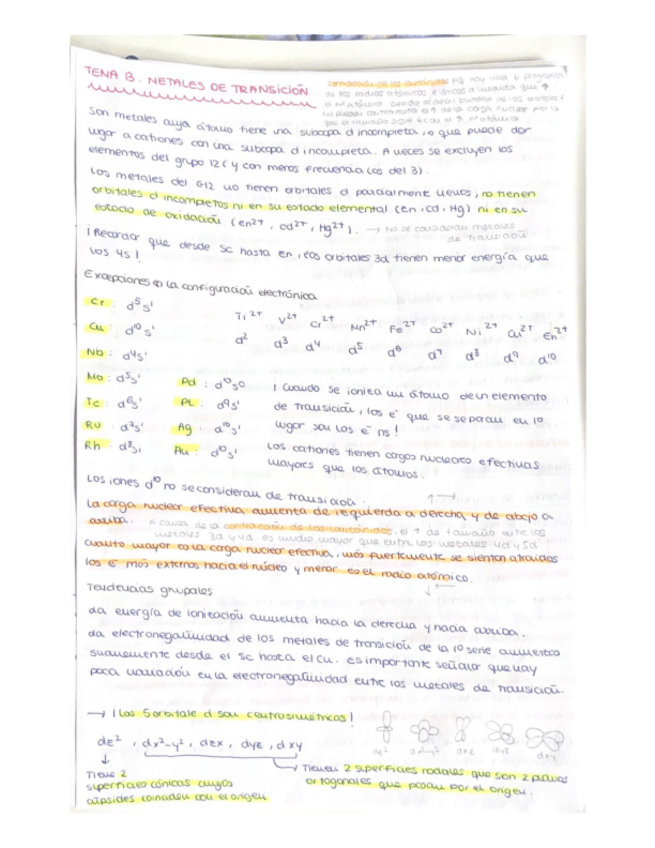 TEMA 13. METALES DE TRANSICIÓN
contracción de los lantánidos: hay una ↓
de los radios atómicos e iónicos a medida que ↑
Son metales cuyo átomo tiene una subcapa d incompleta, o que puede dar
lugar a cationes con una subcapa d incompleta. A veces se excluyen los
elementos del grupo 12 (y con menos frecuencia los del 3).
Los metales del G12 no tienen orbitales d parcialmente llenos, no tienen
orbitales d incompletos ni en su estado elemental (Zn, Cd, Hg) ni en su
estado de oxidación (Zn2+, Cd2+, Hg2+). → No se consideran metales
de transición
¡Recordar que desde Sc hasta Zn, los orbitales 3d tienen menor energía que
los 4s!
Excepciones en la configuración electrónica
Cr: d5s1
Cu: d10s1
Nb: d4s1
Mo: d5s1
Tc: d6s1
Ru: d7s1
Rh: d8s1
Pd: d10s0
Pt: d9s1
Ag: d10s1
Au: d10s1
Ti2+ V2+ Cr2+ Mn2+ Fe2+ Co2+ Ni2+ Cu2+ Zn2+
d2 d3 d4 d5 d6 d7 d8 d9 d10
¡Cuando se ioniza un átomo de un elemento
de transición, los e- que se separan en 1º
lugar son los e- ns!
Los cationes tienen cargas nucleares efectivas
mayores que los átomos.
Los iones d10 no se consideran de transición.
La carga nuclear efectiva aumenta de izquierda a derecha, y de abajo a
arriba. A causa de la contracción de los lantánidos, el ↑ de tamaño entre los
metales 3d y 4d es mucho mayor que entre los metales 4d y 5d
Cuanto mayor es la carga nuclear efectiva, más fuertemente se sienten atraídos
los e- más externos hacia el núcleo y menor es el radio atómico.
Tendencias grupales
La energía de ionización aumenta hacia la derecha y hacia arriba.
La electronegatividad de los metales de transición de la 1º serie aumenta
suavemente desde el Sc hasta el Cu. Es importante señalar que hay
poca variación en la electronegatividad entre los metales de transición.
→ ¡Los 5 orbitales d son centrosimétricos!
dz2, dx2-y2, dzx, dyz, dxy
dz2 dx2-y2 dxz dyz dxy
↓
Tiene 2
superficies cónicas cuyos
ápsides coinciden con el origen
→ Tienen 2 superficies nodales que son 2 planos
ortogonales que pasan por el origen.